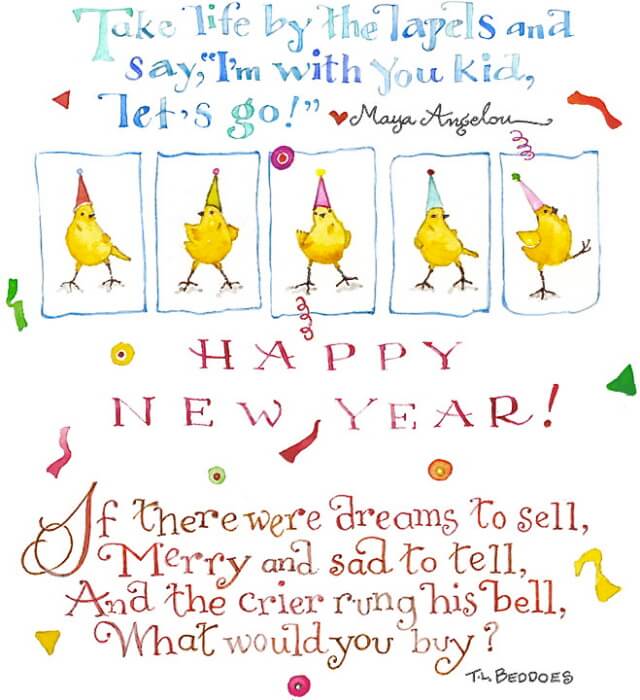 Take life by the lapels and
say, "I'm with you kid,
let's go!" ♥ Maya Angelou
HAPPY
NEW YEAR!
If there were dreams to sell,
Merry and sad to tell,
And the crier rung his bell,
What would you buy?
T.L. BEDDOES